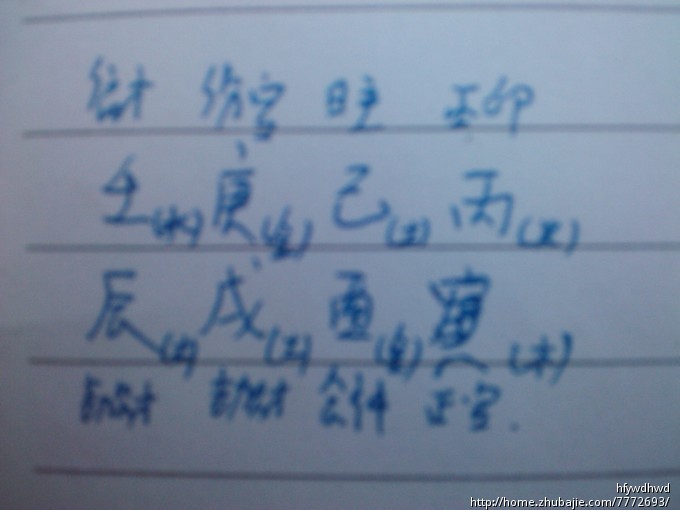 伤官 日主 正印
壬(水) 庚(金) 己(土) 丙(火)
辰(土) 戌(土) 酉(金) 寅(木)
劫财 劫财 食神 正官.
hfywdhwd
http://home.zhubajie.com/7772693/